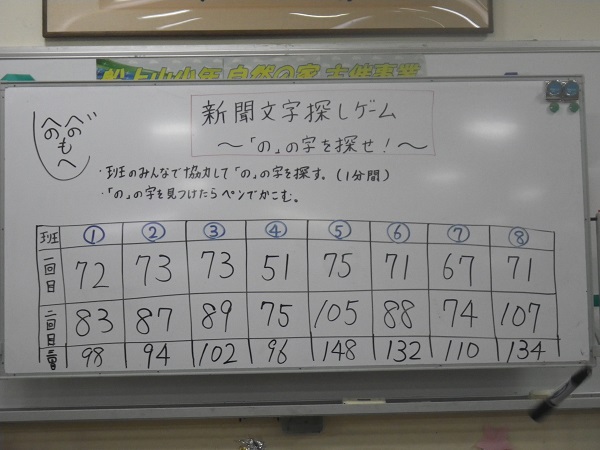 船上山少年自然の家 主催事業
へのへの
もへ
じ
新聞文字探しゲーム
〜「の」の字を探せ!〜
・班のみんなで協力して「の」の字を探す。(1分間)
・「の」の字を見つけたらペンでかこむ。
班 ① ② ③ ④ ⑤ ⑥ ⑦ ⑧
一回目 72 73 73 51 75 71 67 71
二回目 83 87 89 75 105 88 74 107
三回目 98 94 102 96 148 132 110 134